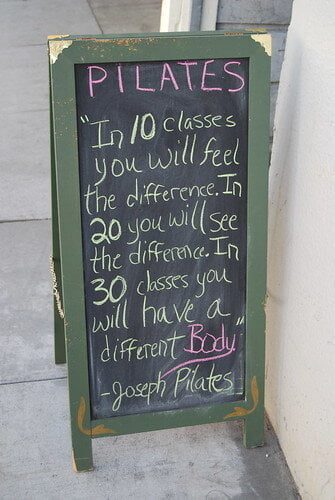 PILATES
"In 10 classes
you will feel
the difference. In
20 you will see
the difference. In
30 classes you
will have a
different Body"
-Joseph Pilates-